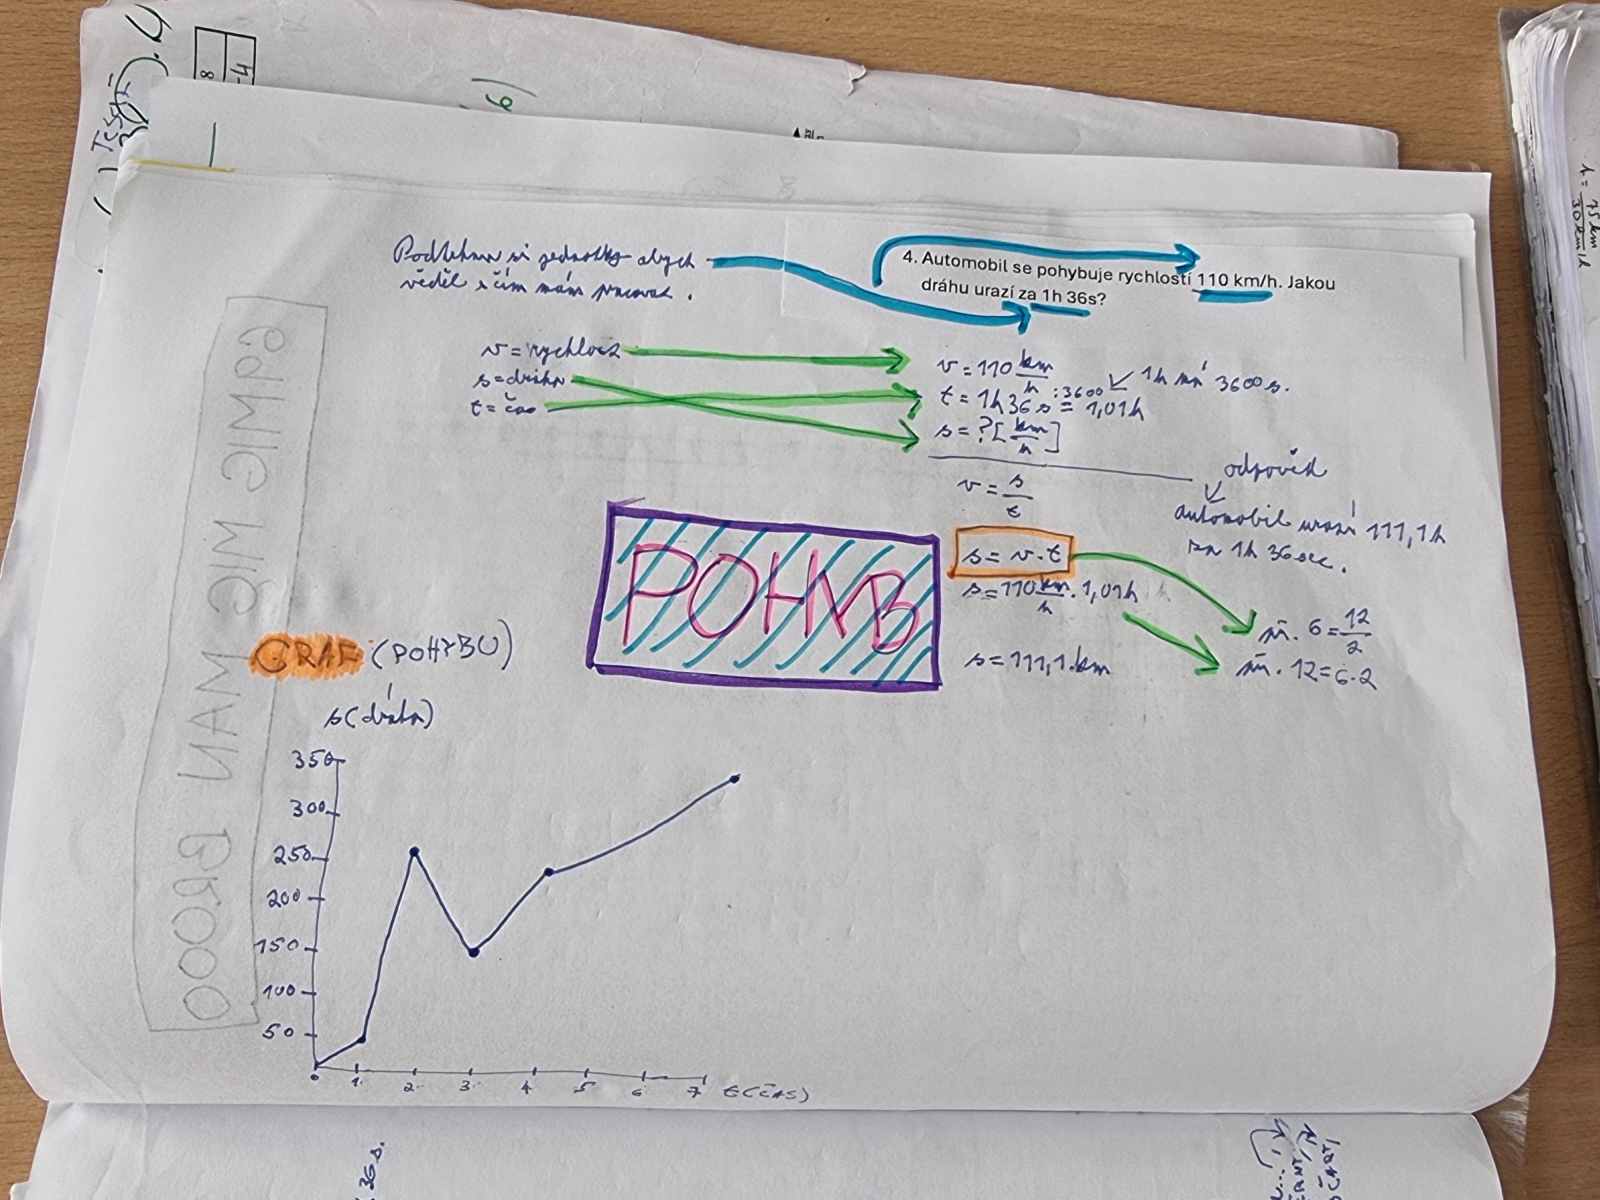 Podtrhnu si jednotky abych
věděl s čím mám pracovat.
4. Automobil se pohybuje rychlostí 110 km/h. Jakou
dráhu urazí za 1h 36s?
v = rychlost
s = dráha
t = čas
v = 110 km/h
1h má 3600 s.
:3600
t = 1h 36s = 1,01h
s = ? [km/h]
v = s/t
odpověď
automobil urazí 111,1h
za 1h 36sec.
s = v · t
s = 110 km/h · 1,01h
s = 111,1 km
př. 6 = 12/2
př. 12 = 6·2
POHYB
GRAF (POHYBU)
s (dráha)
350
300
250
200
150
100
50
0 1 2 3 4 5 6 7 t (ČAS)
MAN
BROOO
6)
8
-4
36s.
75 km
30 km/h